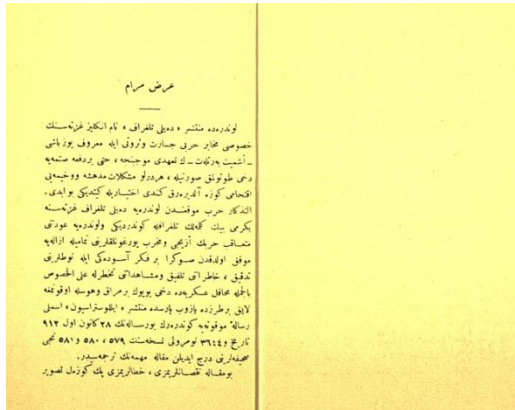 عرض مرام
لوندره‌ده منتشر « ده‌یلی تلغراف » نام انكلیز غزته‌سنك
خصوصی مخابر حربی جسارت وثروتی ایله معروف یوزباشی
ـ آشمیت به‌رتله‌ت ـ ك تعهدی موجبنجه ، حتی بردفعه صتمه‌یه
دخی طوتولمق صورتیله ، هردرلو مشكلات مدهشه ووخیمه‌یی
اقتحامی كوزه آلدیره‌رق كندی اختیاریله كیتدیكی بو ابدی ـ
التذكار حرب موقعندن لوندره‌یه ده‌یلی تلغراف غزته‌سنه
یكرمی بیك كله‌لك تلغرافله كوندردیكی ولوندره‌یه عودتنی
متعاقب حربك آزیجی ومخرب یورغونلقلرینی تمامیله ازاله‌یه
موفق اولدقدن صوكرا بر فكر آسوده‌كی ایله نوطلرینی
تدقیق ، خاطراتنی تلفیق ومشاهداتنی تخطرله علی الخصوص
بالجمله محافل عسكریه‌ده دخی بویوك برمراق وهوسله اوقونمغه
لایق برطرزده یازوب پارسده منتشر « ایللوستراسیون » اسملی
رساله موقوته‌یه كوندره‌رك بورساله‌نك ٢٨ كانون اول ٩١٢
تاریخ و ٣٦٤٤ نومرولی نسخه‌سنك ٥٧٩ ، ٥٨٠ و ٥٨١ نجی
صحیفه‌لرینی درج ایدیلن مقاله مهمه‌نك ترجمه‌سیدر.
بومقاله نقصانلریمزی ، خطالریمزی پك كوزه‌ل تصویر